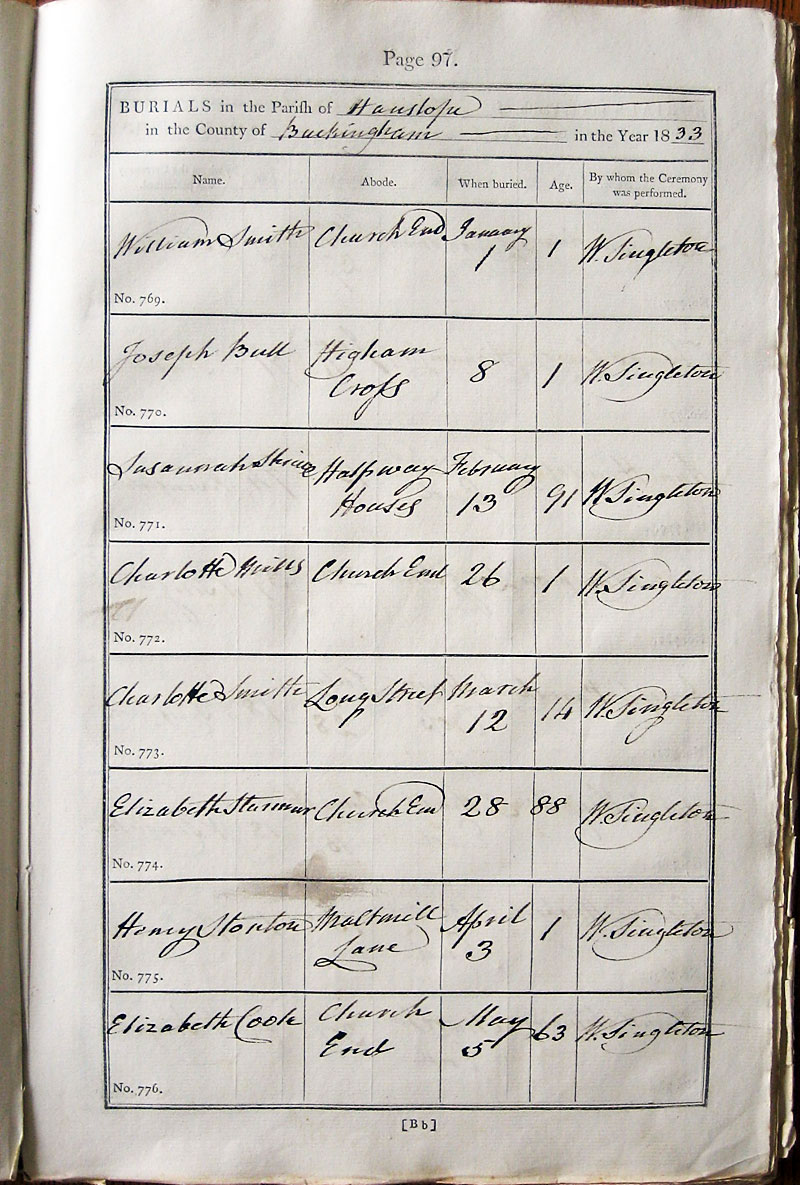 Page 97.
BURIALS in the Parish of Hanslope
in the County of Buckingham in the Year 1833
Name. Abode. When buried. Age. By whom the Ceremony was performed.
William Smith Church End January 1 1 W. Singleton
No. 769.
Joseph Bull Higham Cross 8 1 W. Singleton
No. 770.
Susannah Halfway Houses February 13 91 W. Singleton
No. 771.
Charlotte Mills Church End 26 1 W. Singleton
No. 772.
Charlotte Smith Long Street March 12 14 W. Singleton
No. 773.
Elizabeth Church End 28 88 W. Singleton
No. 774.
Henry Stonton Maltmill Lane April 3 1 W. Singleton
No. 775.
Elizabeth Cook Church End May 5 63 W. Singleton
No. 776.
[Bb]